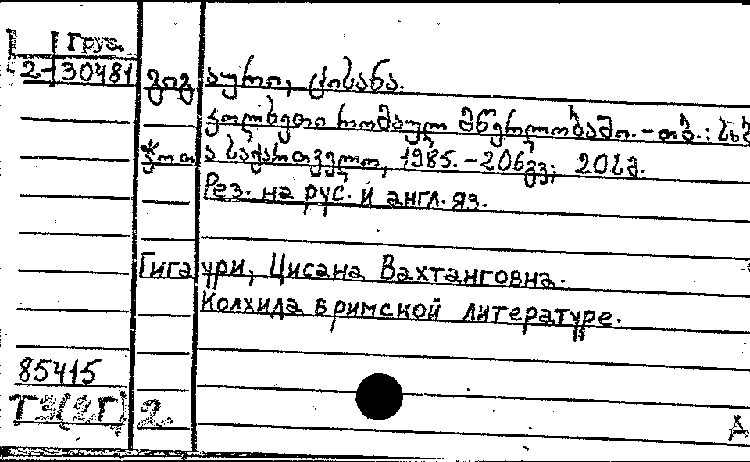 Груз.
2-30481
გიგაური, ცისანა.
კოლხეთი რომაულ მწერლობაში. - თბ.: საბ
ჭოთა საქართველო, 1985. - 206გვ; 20სმ.
Рез. на рус. и англ. яз.
Гигаури, Цисана Вахтанговна.
Колхида в римской литературе.
85415
Т3(2Г) 2
А